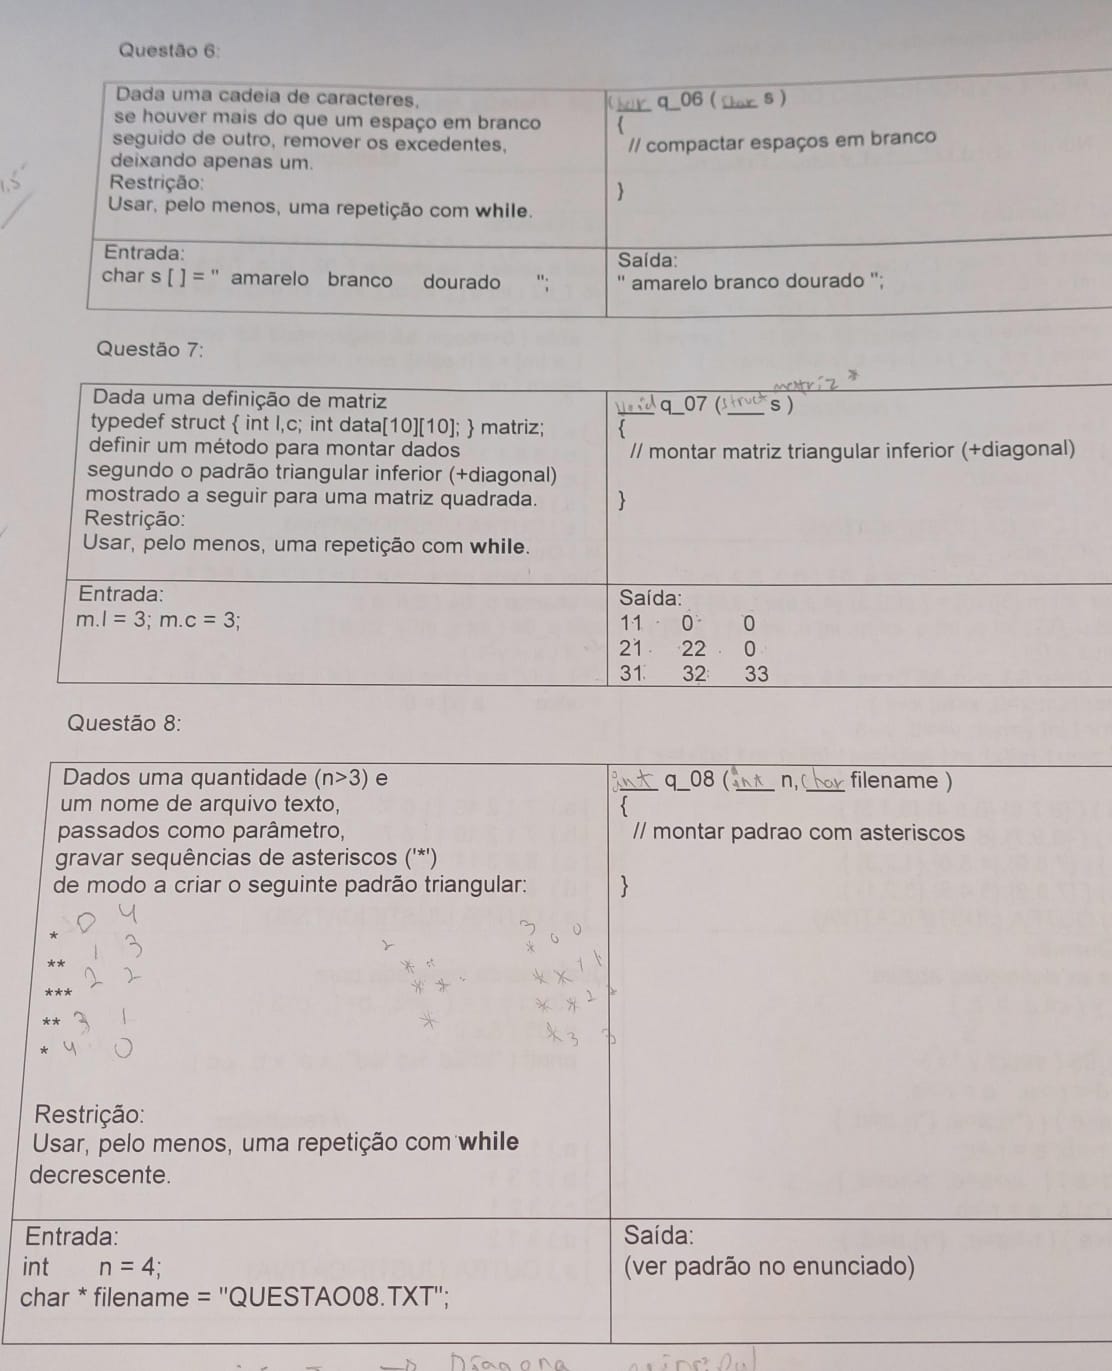 Questão 6:
Dada uma cadeia de caracteres,
se houver mais do que um espaço em branco
seguido de outro, remover os excedentes,
deixando apenas um.
Restrição:
Usar, pelo menos, uma repetição com while.
char q_06 ( char s )
{
// compactar espaços em branco
}
1,5
Entrada:
char s [ ] = " amarelo branco dourado ";
Saída:
" amarelo branco dourado ";
Questão 7:
Dada uma definição de matriz
typedef struct { int l,c; int data[10][10]; } matriz;
definir um método para montar dados
segundo o padrão triangular inferior (+diagonal)
mostrado a seguir para uma matriz quadrada.
Restrição:
Usar, pelo menos, uma repetição com while.
matriz *
void q_07 ( struct s )
{
// montar matriz triangular inferior (+diagonal)
}
Entrada:
m.l = 3; m.c = 3;
Saída:
11 0 0
21 22 0
31 32 33
Questão 8:
Dados uma quantidade (n>3) e
um nome de arquivo texto,
passados como parâmetro,
gravar sequências de asteriscos ('*')
de modo a criar o seguinte padrão triangular:
* 0 4
** 1 3
*** 2 2
** 3 1
* 4 0
2
* *
* *
*
3 0
* 0 0
* * 1 1
* * 2 2
* 3 3
Restrição:
Usar, pelo menos, uma repetição com while
decrescente.
int q_08 ( int n, char filename )
{
// montar padrao com asteriscos
}
Entrada:
int n = 4;
char * filename = "QUESTAO08.TXT";
Saída:
(ver padrão no enunciado)
Diagona principal